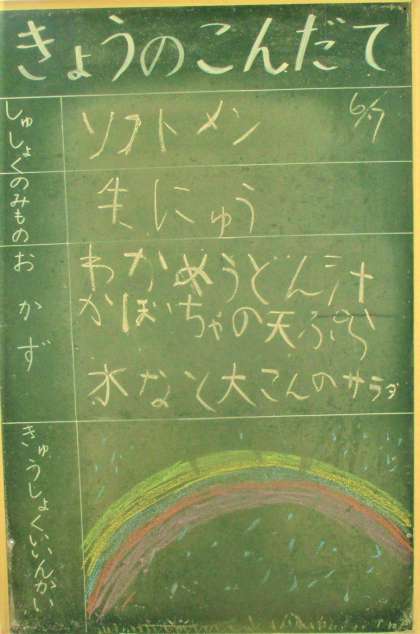 きょうのこんだて
6/7
しゅしょく
ソフトメン
のみもの
牛にゅう
おかず
わかめうどん汁
かぼちゃの天ぷら
水なと大こんのサラダ
きゅうしょくいいんかい